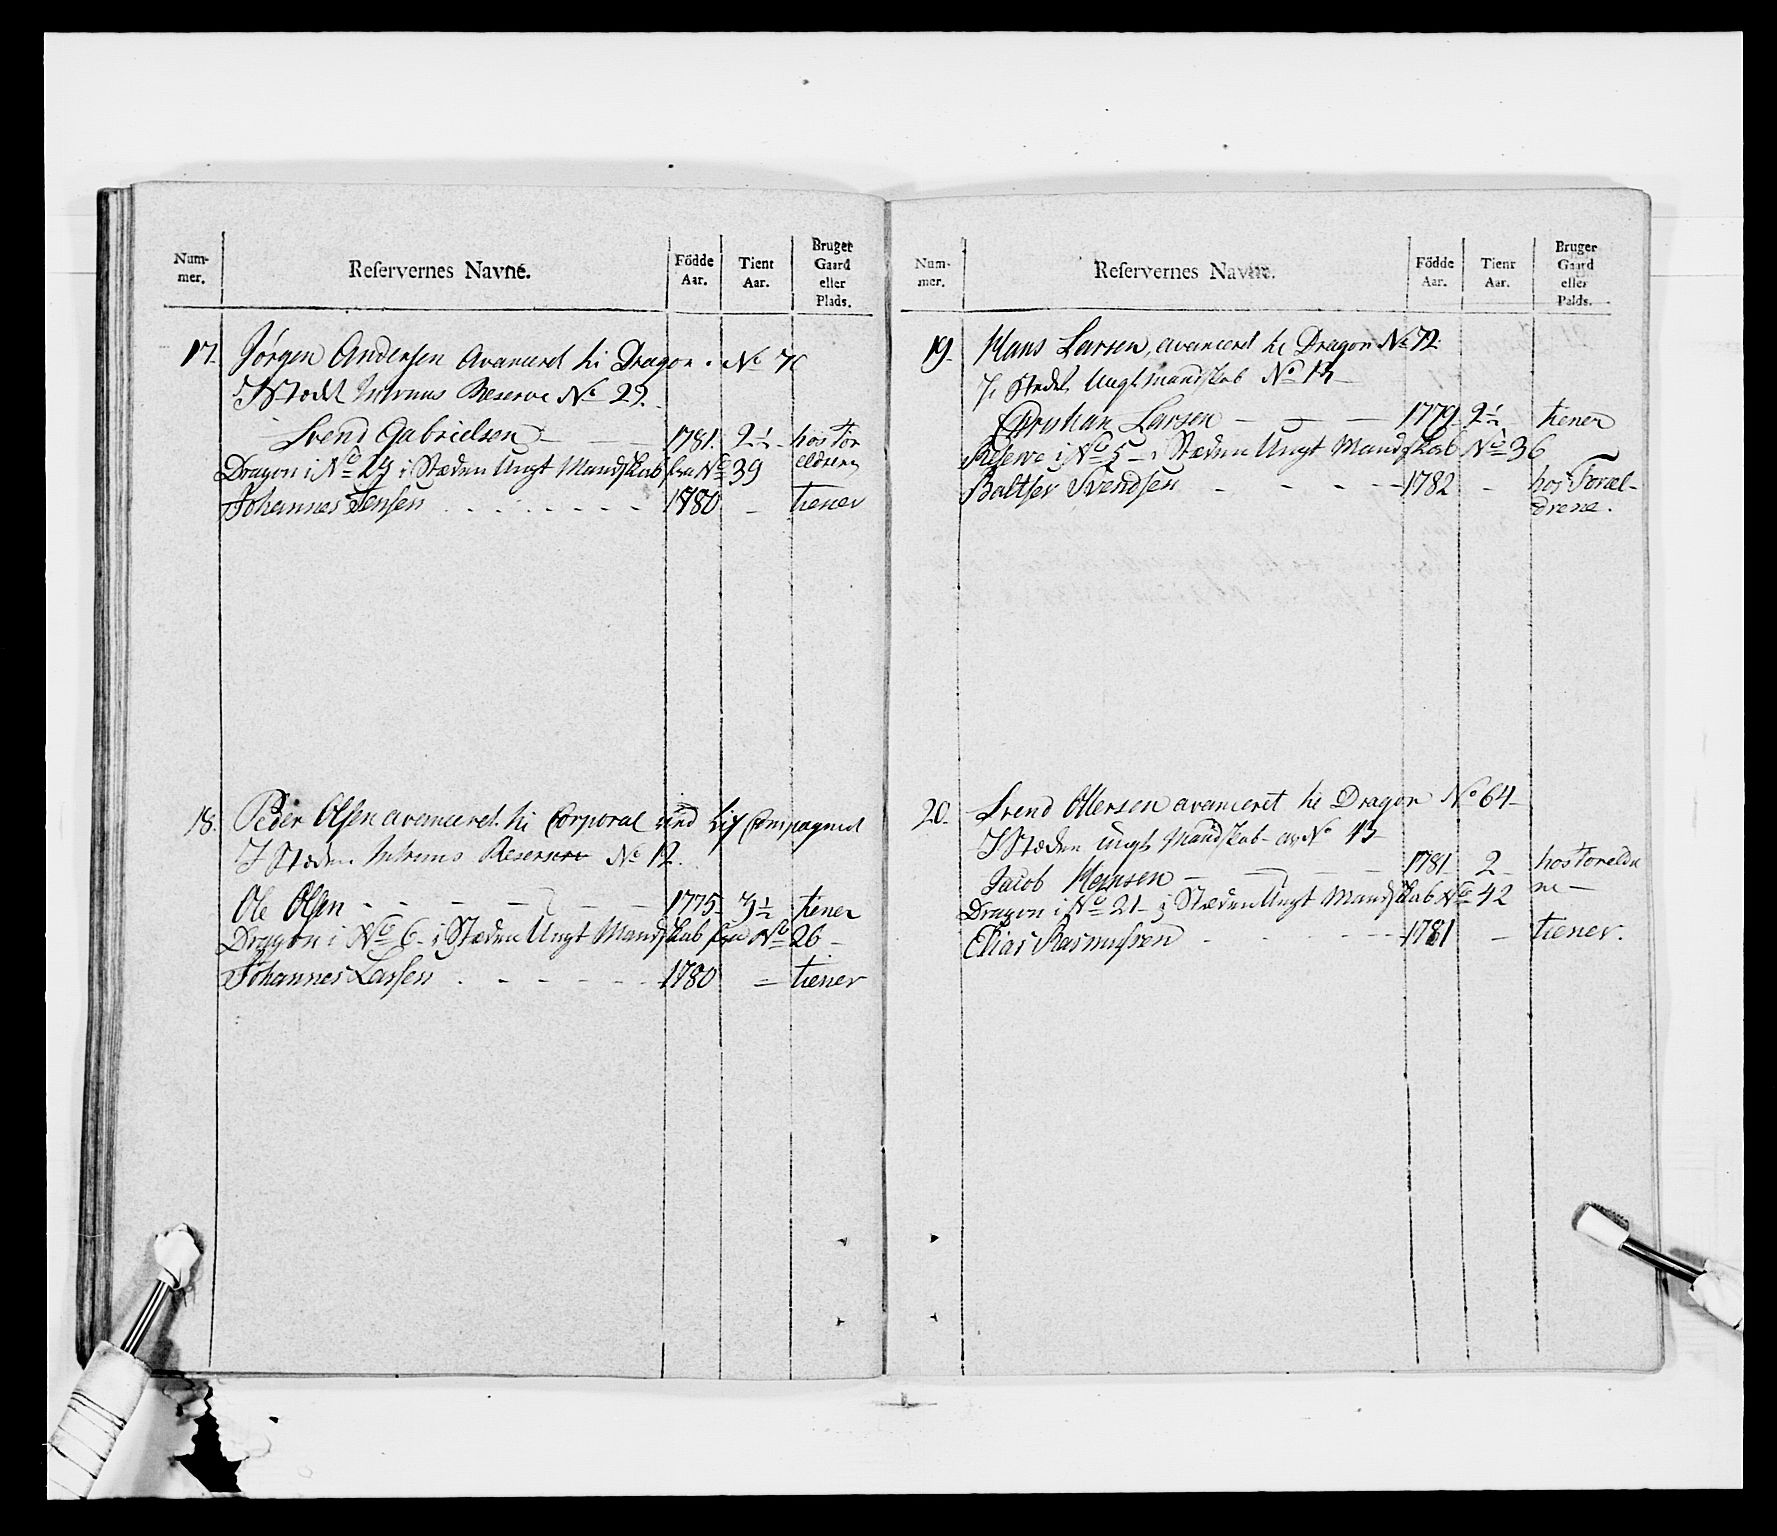 Num-
mer.
Reservernes Navne.
Födde
Aar.
Tient
Aar.
Bruger
Gaard
eller
Plads.
17. Jørgen Andersen Avanceret til Dragon. No 71
I Stedet Reserve No 29.
Svend Gabrielsen - - - 1781. 2½ - hos for
eldrene
Dragon i No 24 i Stæden Ungt Mandskab fra No 39
Johannes Jensen - - - - - 1780 - tiener
18. Peder Olsen avanceret til Corporal ved Liv Compagniet
I Stæden Reserve No 12.
Ole Olsen - - - - - 1775 - 3½ - tiener
Dragon i No 6 - i Stæden Ungt Mandskab fra No 26 -
Johannes Larssen - - - - - 1780 - tiener
Num-
mer.
Reservernes Navne.
Födde
Aar.
Tient
Aar.
Bruger
Gaard
eller
Palds.
19. Hans Larsen, avanceret til Dragon No 72
I Stedet Ungt mandskab No 13 -
Christian Larsen - - - 1779 2½ - tiener
Reserve i No 5 - i Stæden Ungt Mandskab No 36
Baltser Svendsen - - - - 1782 - hos Foræl-
drene.
20. Svend Ottersen avanceret til Dragon No 64 -
I Stæden Ungt Mandskab No 43
Jacob - - - 1781 - 2 - hos Foreldre
ne -
Dragon i No 21 - i Stæden Ungt Mandskab No 42
Elias Rasmussen - - - - 1781 - tiener.